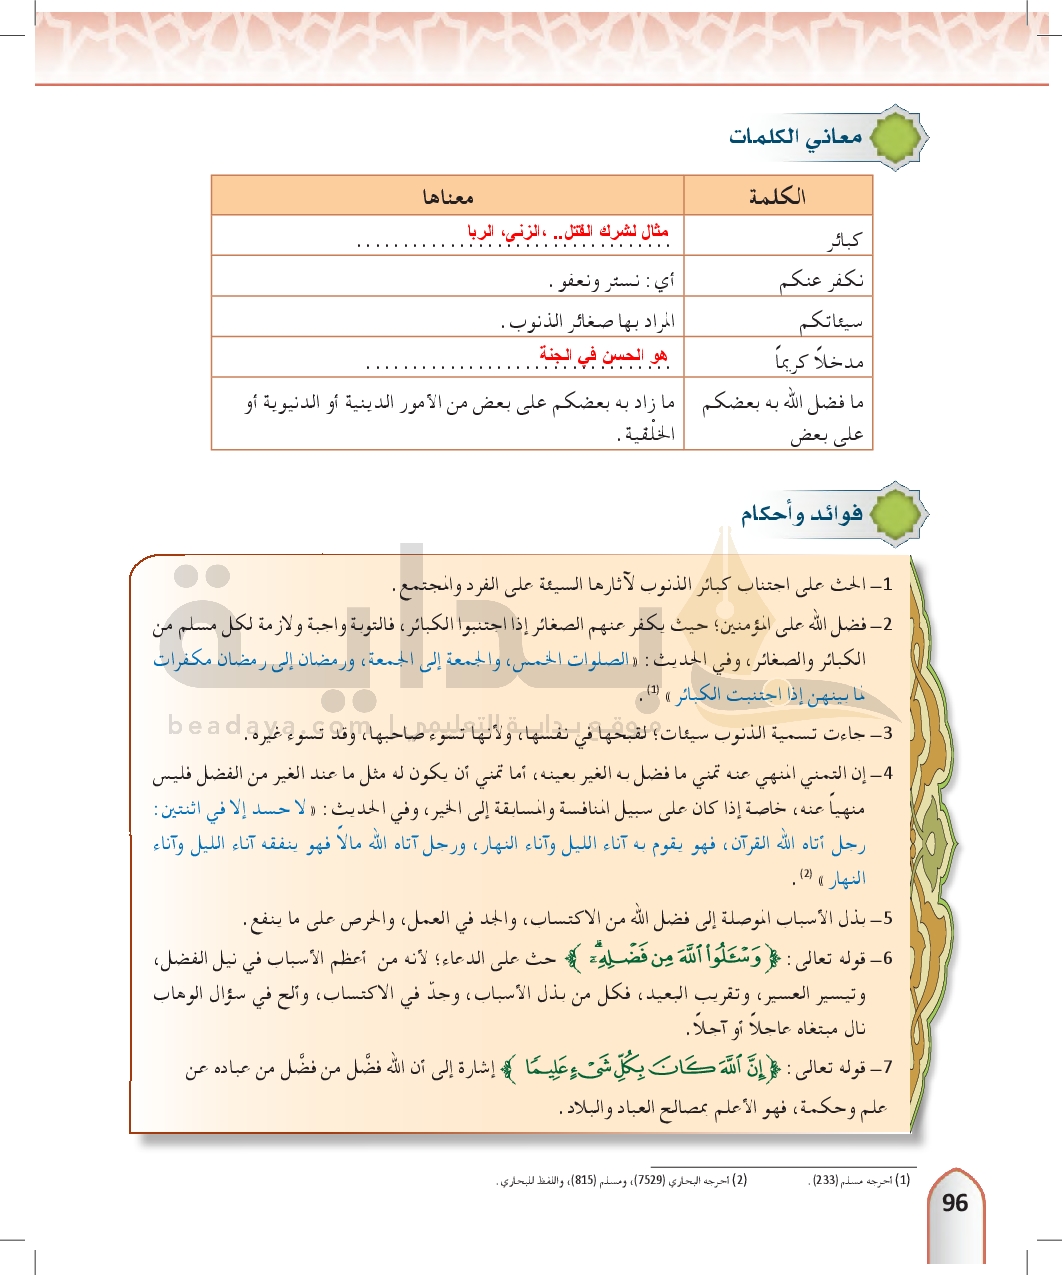 معاني الكلمات
الكلمة معناها
كبائر مثال لشرك القتل.. ،الزنى، الربا
نكفر عنكم أي : نستر ونعفو .
سيئاتكم المراد بها صغائر الذنوب .
مدخلاً كريماً هو الحسن في الجنة
ما فضل الله به بعضكم ما زاد به بعضكم على بعض من الأمور الدينية أو الدنيوية أو
على بعض الخلْقية .
فوائد وأحكام
1– الحث على اجتناب كبائر الذنوب لآثارها السيئة على الفرد والمجتمع .
2– فضل الله على المؤمنين؛ حيث يكفر عنهم الصغائر إذا اجتنبوا الكبائر، فالتوبة واجبة ولازمة لكل مسلم من
الكبائر والصغائر، وفي الحديث : « الصلوات الخمس، والجمعة إلى الجمعة، ورمضان إلى رمضان مكفرات
لما بينهن إذا اجتنبت الكبائر » (1) .
بداية
beadaya.com | موقع بداية التعليمي
3– جاءت تسمية الذنوب سيئات؛ لقبحها في نفسها، ولأنها تسوء صاحبها، وقد تسوء غيره .
4– إن التمني المنهي عنه تمني ما فضل به الغير بعينه، أما تمني أن يكون له مثل ما عند الغير من الفضل فليس
منهياً عنه، خاصة إذا كان على سبيل المنافسة والمسابقة إلى الخير، وفي الحديث : « لا حسد إلا في اثنتين :
رجل أتاه الله القرآن، فهو يقوم به آناء الليل وآناء النهار، ورجل آتاه الله مالاً فهو ينفقه آناء الليل وآناء
النهار » (2) .
5– بذل الأسباب الموصلة إلى فضل الله من الاكتساب، والجد في العمل، والحرص على ما ينفع .
6– قوله تعالى : ﴿ وَسْـَٔلُوا۟ ٱللَّهَ مِن فَضْلِهِۦٓ ۗ ﴾ حث على الدعاء؛ لأنه من أعظم الأسباب في نيل الفضل،
وتيسير العسير، وتقريب البعيد، فكل من بذل الأسباب، وجدّ في الاكتساب، وألح في سؤال الوهاب
نال مبتغاه عاجلاً أو آجلاً .
7– قوله تعالى : ﴿ إِنَّ ٱللَّهَ كَانَ بِكُلِّ شَىْءٍ عَلِيمًا ﴾ إشارة إلى أن الله فضَّل من فضَّل من عباده عن
علم وحكمة، فهو الأعلم بمصالح العباد والبلاد .
(1) أخرجه مسلم (233) . (2) أخرجه البخاري (7529)، ومسلم (815)، واللفظ للبخاري .
96